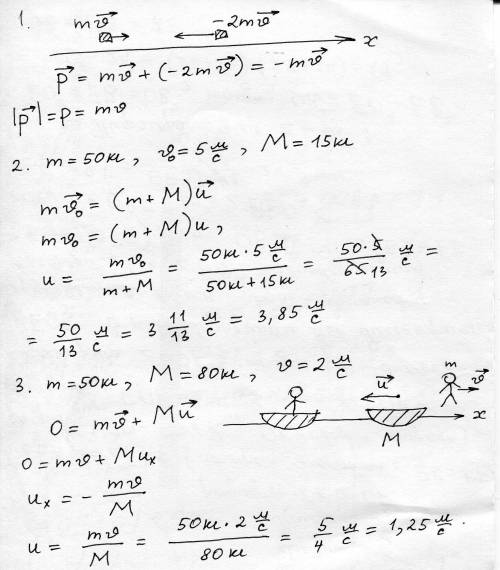 1. mv⃗ -2mv⃗
x
p⃗ = mv⃗ + (-2mv⃗) = -mv⃗
|p⃗| = p = mv
2. m = 50кг, v₀ = 5 м/с, M = 15кг
mv⃗₀ = (m + M)u⃗
mv₀ = (m + M)u,
u = mv₀/(m + M) = (50кг · 5 м/с)/(50кг + 15кг) = (50 · 5)/(65 13) м/с =
= 50/13 м/с = 3 11/13 м/с = 3,85 м/с
3. m = 50кг, M = 80кг, v = 2 м/с
0 = mv⃗ + Mu⃗
u⃗ m v⃗
x
M
0 = mv + Muₓ
uₓ = - mv/M
u = mv/M = (50кг · 2 м/с)/(80кг) = 5/4 м/с = 1,25 м/с.